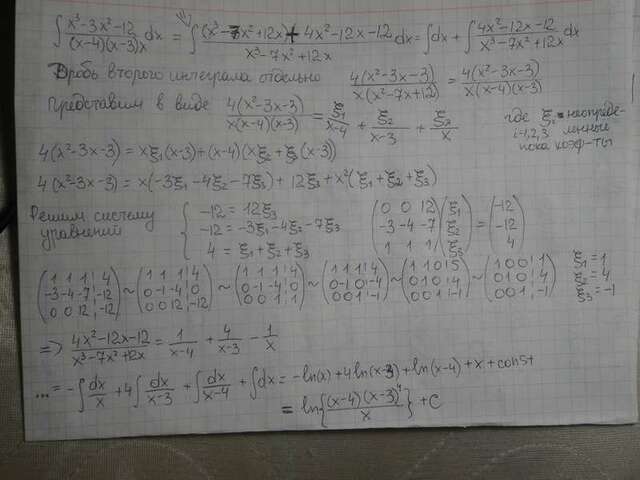 ∫ x³-3x²-12 / (x-4)(x-3)x dx = ∫ (x³-7x²+12x)+4x²-12x-12 / x³-7x²+12x dx = ∫dx + ∫ 4x²-12x-12 / x³-7x²+12x dx
Дробь второго интеграла отдельно 4(x²-3x-3) / x(x²-7x+12) = 4(x²-3x-3) / x(x-4)(x-3)
представим в виде 4(x²-3x-3) / x(x-4)(x-3) = ξ₁/x-4 + ξ₂/x-3 + ξ₃/x где ξᵢ - неопределенные
i=1,2,3 пока коэф-ты
4(x²-3x-3) = xξ₁(x-3)+(x-4)(xξ₂+ξ₃(x-3))
4(x²-3x-3) = x(-3ξ₁-4ξ₂-7ξ₃)+12ξ₃+x²(ξ₁+ξ₂+ξ₃)
Решим систему уравнений
{ -12 = 12ξ₃
-12 = -3ξ₁-4ξ₂-7ξ₃
4 = ξ₁+ξ₂+ξ₃
(0 0 12; -3 -4 -7; 1 1 1)(ξ₁; ξ₂; ξ₃) = (-12; -12; 4)
(1 1 1|4; -3 -4 -7|-12; 0 0 12|-12) ~ (1 1 1|4; 0 -1 -4|0; 0 0 12|-12) ~ (1 1 1|4; 0 -1 -4|0; 0 0 1|1) ~ (1 1 1|4; 0 -1 0|-4; 0 0 1|-1) ~ (1 1 0|5; 0 1 0|4; 0 0 1|-1) ~ (1 0 0|1; 0 1 0|4; 0 0 1|-1)
ξ₁ = 1
ξ₂ = 4
ξ₃ = -1
=> 4x²-12x-12 / x³-7x²+12x = 1/x-4 + 4/x-3 - 1/x
... = -∫dx/x + 4∫dx/x-3 + ∫dx/x-4 + ∫dx = -ln(x)+4ln(x-3)+ln(x-4)+x+const
= ln{(x-4)(x-3)⁴ / x} + C